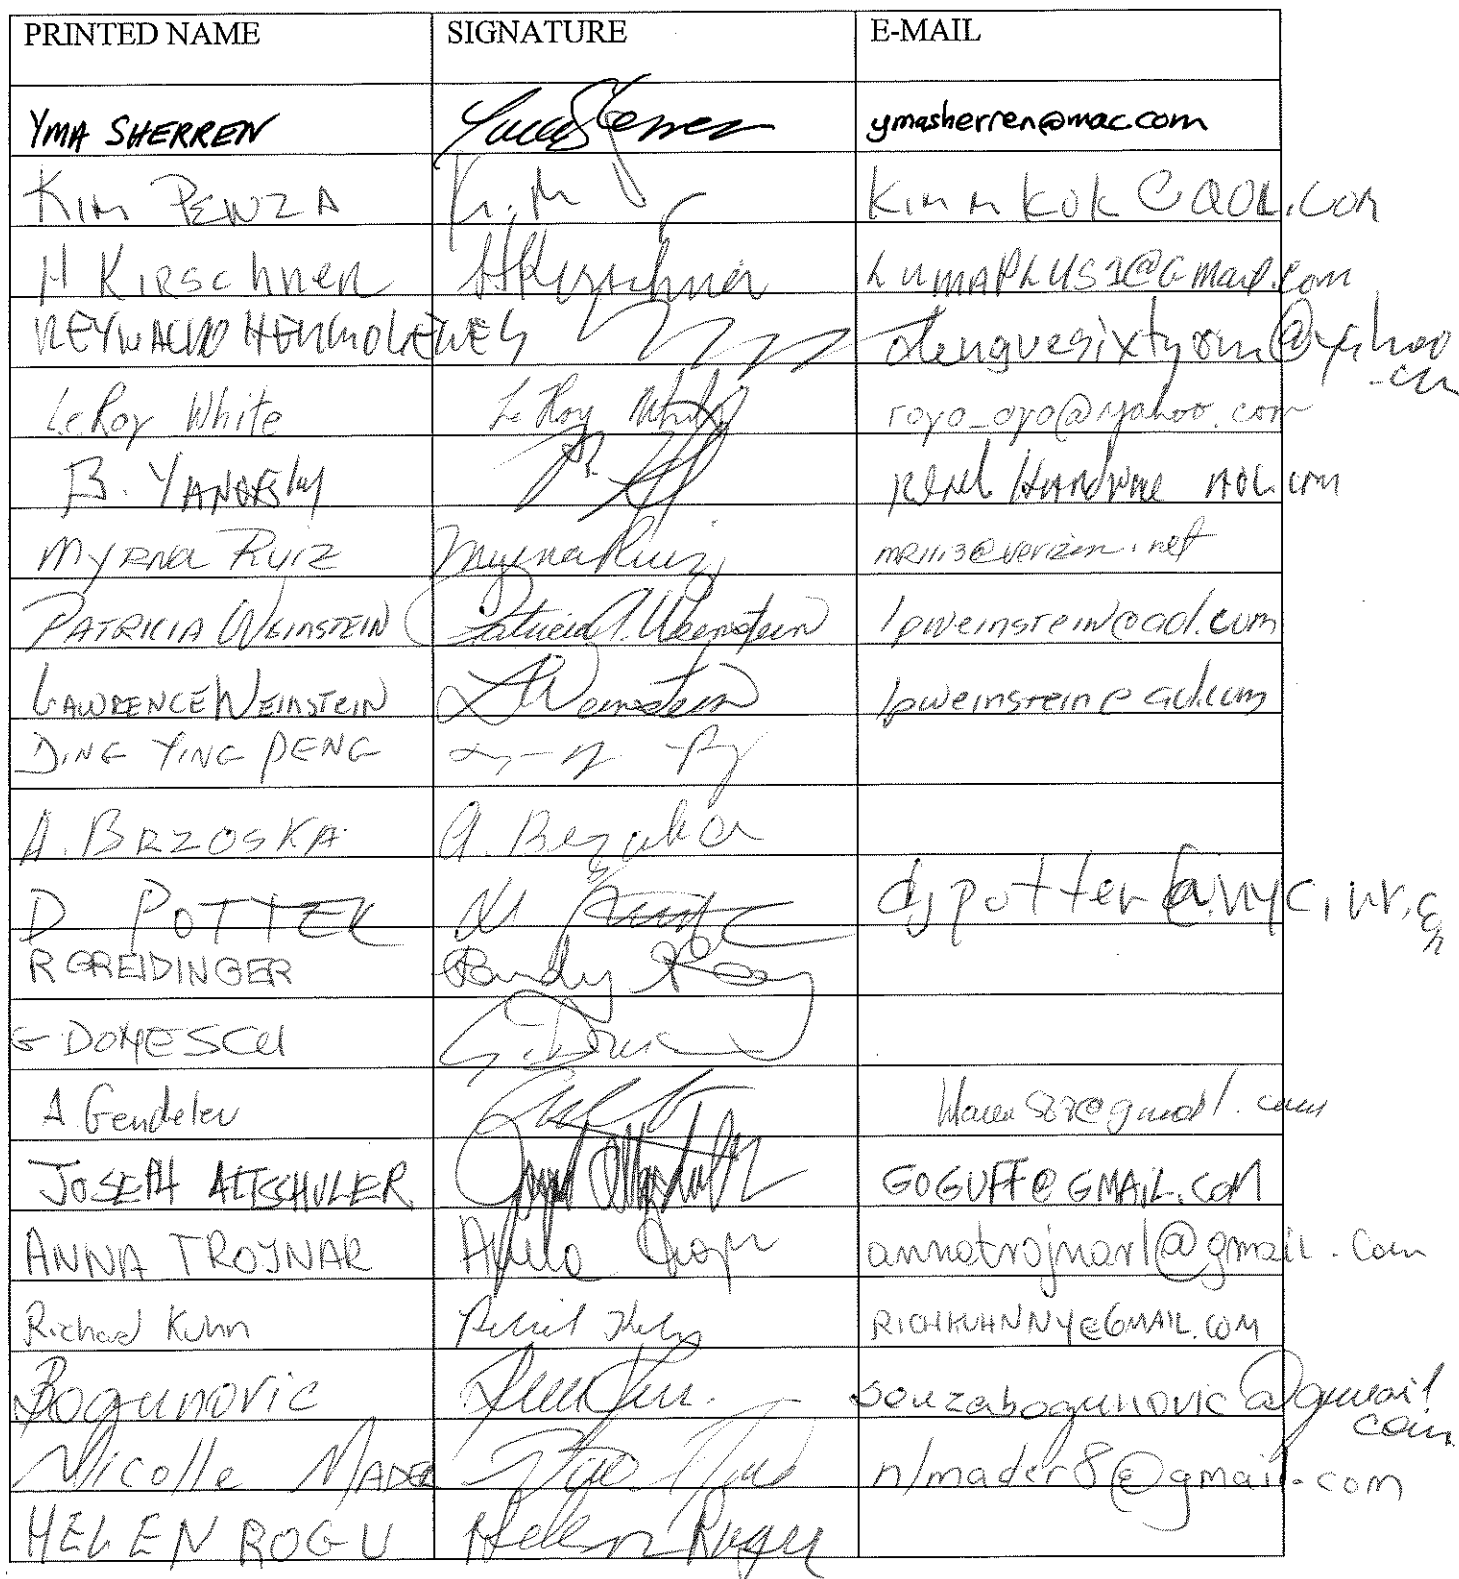 PRINTED NAME SIGNATURE E-MAIL
YMA SHERREN Yma Sherren ymasherren@mac.com
KIM PENZA K.M P Kimmkok@AOL.COM
H KIRSCHNER HKirschner LUMAPLUS1@Gmail.com
LeRoy White LeRoy White royo_oyo@yahoo.com
B. YANOFSKY AOL.com
MYRNA RUIZ Myrna Ruiz MR1113@verizon.net
PATRICIA WEINSTEIN Patricia A. Weinstein lpweinstein@aol.com
LAWRENCE WEINSTEIN L Weinstein lpweinstein@aol.com
DING YING PENG
A. BRZOSKA A. Brzoska
D POTTER djpotter@nyc.rr.
R GREIDINGER Randy
G DOMESCU G. Dom
A. Gendelev @gmail.com
JOSEPH ALTSCHULER Joseph Altschuler GOGUFF@GMAIL.COM
ANNA TROJNAR Anna Trojnar annatrojnar1@gmail.com
Richard Kuhn Richard Kuhn RICHKUHNNY@GMAIL.COM
Bogunovic souzabogunovic@gmail
com
Nicolle MADER nlmader8@gmail.com
HELEN ROGU Helen Rogu